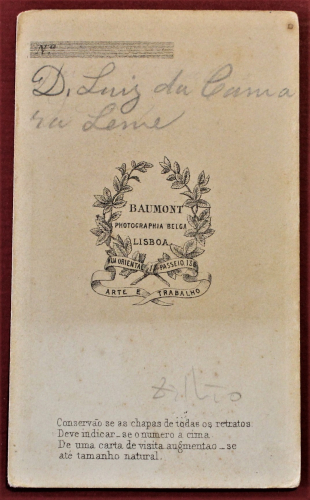 Nº
D. Luiz da Cama
ra Leme
BAUMONT
PHOTOGRAPHIA BELGA
LISBOA
RUA ORIENTAL DO PASSEIO
ARTE E TRABALHO
Conservão se as chapas de todas os retratos
Deve indicar_se o numero a cima
De uma carta de visita augmentao_se
até tamanho natural.